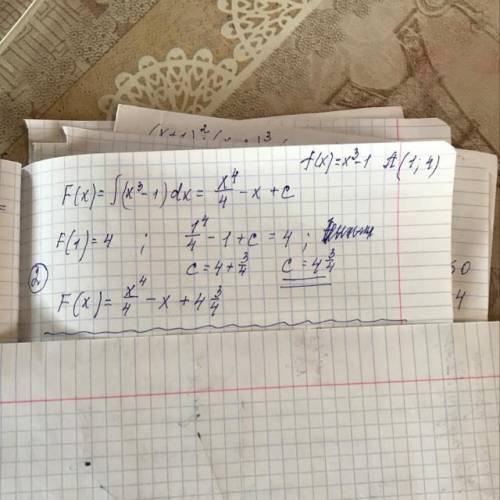 (x+1)²
f(x)=x³-1 A(1; 4)
F(x)=∫(x³-1)dx= x⁴/4 -x+c
F(1)=4 ; 1⁴/4 -1+c=4 ;
c=4+3/4 c=4 3/4
②
F(x)= x⁴/4 -x+4 3/4
50
4